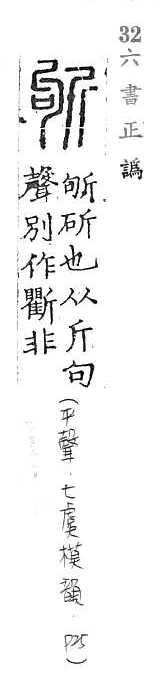 32 六書正譌
斪
斪斫也从斤句
聲別作非
(平聲．七虞模韻．P25)